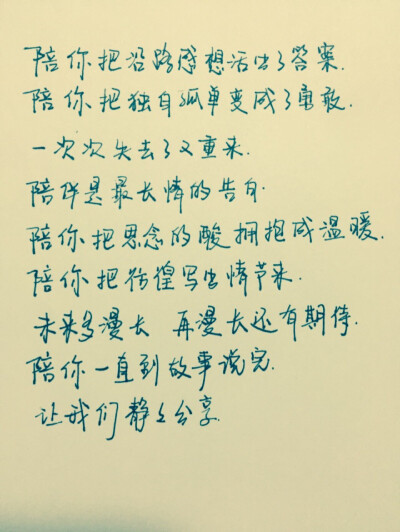 陪你把沿路感想活出了答案.
陪你把独自孤单变成了勇敢.
一次次失去了又重来.
陪伴是最长情的告白.
陪你把思念的酸拥抱成温暖.
陪你把彷徨写出情节来.
未来多漫长 再漫长还有期待.
陪你一直到故事说完.
让我们静静分享.